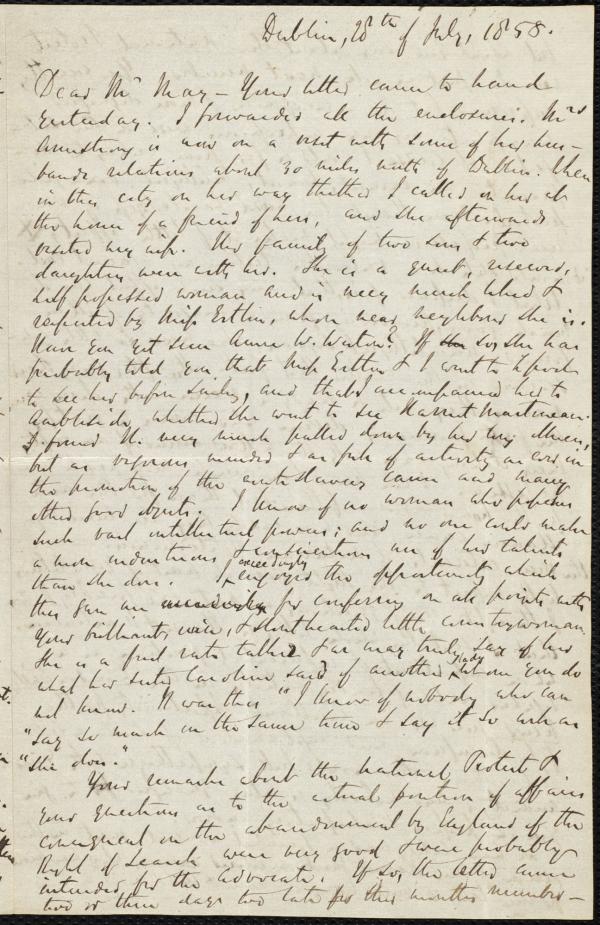 Dublin, 28th of July, 1858.
Dear Mr May – Your letter came to hand
yesterday. I forwarded all the enclosures. Mrs
Armstrong is now on a visit with some of her hus-
bands relations about 30 miles north of Dublin. When
in this city on her way thither I called on her at
the house of a friend of hers, and she afterwards
visited my wife. Her family of two sons & two
daughters were with her. She is a quiet, reserved,
self possessed woman and is very much liked &
respected by Miss Estlin, whose near neighbour she is.
Have you yet seen Anne W. Weston? If she so, she has
probably told you that Miss Estlin & I went to L'pool
to see her before sailing, and that I accompanied her to
Ambleside, whither she went to see Harriet Martineau.
I found H. very much pulled down by her long illness,
but as vigorous minded & as full of activity as ever in
the promotion of the anti-slavery cause and many
other good objects. I know of no woman who possesses
such vast intellectual powers; and no one could make
a more industrious & conscientious use of her talents
than she does. I exceedingly enjoyed the opportunity which
this gave me for conferring on all points with
your brilliant, wise, & stouthearted little countrywoman.
She is a first rate talker & as may truly say of her
what her sister Caroline said of another lady whom you do
not know. It was this "I know of nobody who can
"say so much in the same time & say it so well as
"she does."
Your remarks about the National Protest &
your questions as to the actual position of affairs
consequent on the abandonment by England of the
Right of Search were very good & were probably
intended for the Advocate. If so, the letter came
two or three days too late for this months number –